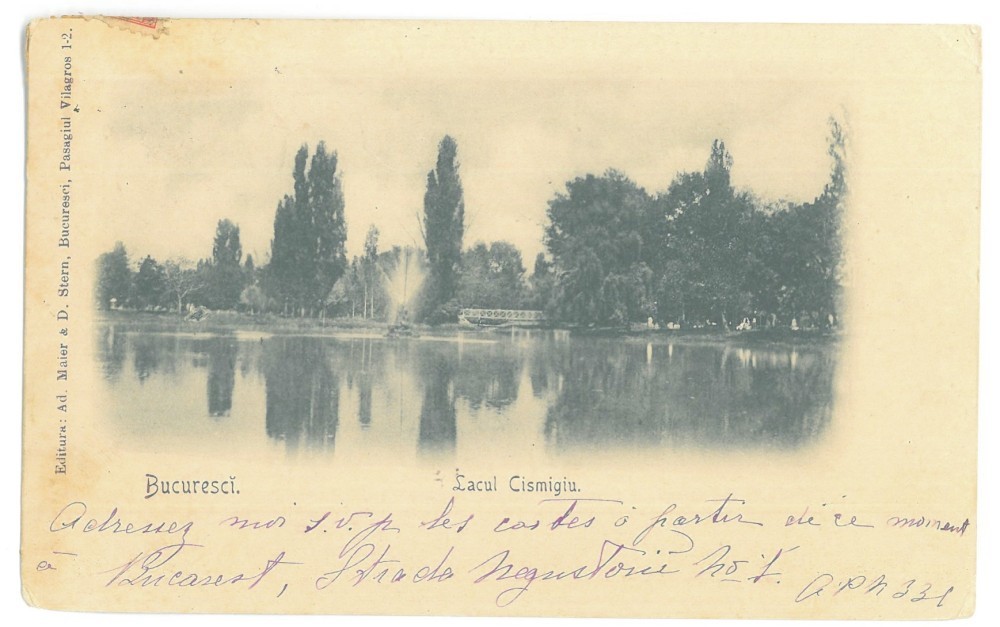 Editura: Ad. Maier & D. Stern, Bucuresci, Pasagiul Vilagros 1-2.
Bucurescĭ.
Lacul Cismigiu.
Adressez moi s.v.p les cartes à partir de ce moment
à Bucarest, Strada Negustorie No 1.